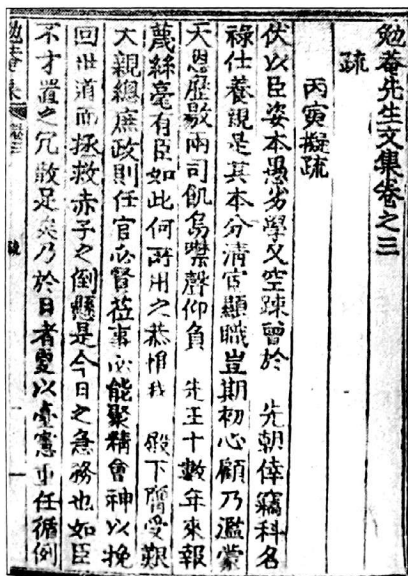 勉菴先生文集卷之三
疏
丙寅擬疏
伏以臣姿本愚劣學又空踈曾於 先朝倖竊科名
祿仕養親是其本分淸宦顯職豈期初心顧乃濫蒙
天恩歷敭兩司飢烏噤聲仰負 先王十數年來報
蔑絲毫有臣如此何所用之恭惟我 殿下膺受艱
大親總庶政則任官必賢莅事必能聚精會神以挽
回世道而拯救赤子之倒懸是今日之急務也如臣
不才置之冗散足矣乃於日者畀以臺憲重任循例
勉菴集 卷三 疏 一